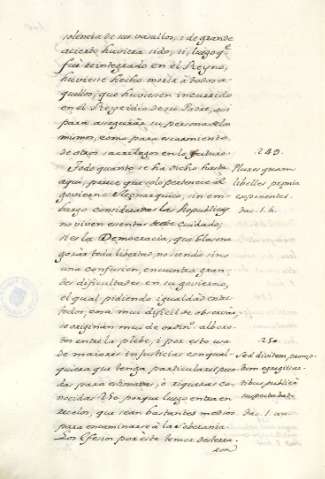 violencia de sus vasallos, i de grande
acierto huviera sido, si, luego qᵉ
fue reintegrado en el Reyno,
huviesse hecho morir à todos a
quellos, que huviessen incurrido
en el Regicidio de su Padre, assi
para assegurar su persona de los
mismos, como para escarmiento
de otros sacrilegos en lo futuro.
Todo quanto se ha dicho hasta
aqui, parece que solo pertenece al
govierno Monarquico, sin em
bargo consideradas las Republicas
no viven exentas de este cuidado,
si es la Democracia, que blasona
gozar toda libertad, no siendo sino
una confusion, encuentra gran
des dificultades en su govierno,
el qual pidiendo igualdad entre
todos, cosa mui dificil de observar,
se originan mui de ordinº alboro
tos entre la plebe, i por esto usa
de maiores injusticias con qual
quiera que tenga particulares pren
das para estimarse, ò riquezas co
nocidas. Vío, porque luego entra en
rezelos, que sean bastantes medios
para encaminarse à la obediencia
Los Efesios por este temor deste
249.
Plures quam
libelles
exponentes
Tac. 1. h.
250.
Sed divitem, prom
ptum
suspectabat
Tac. 1. an